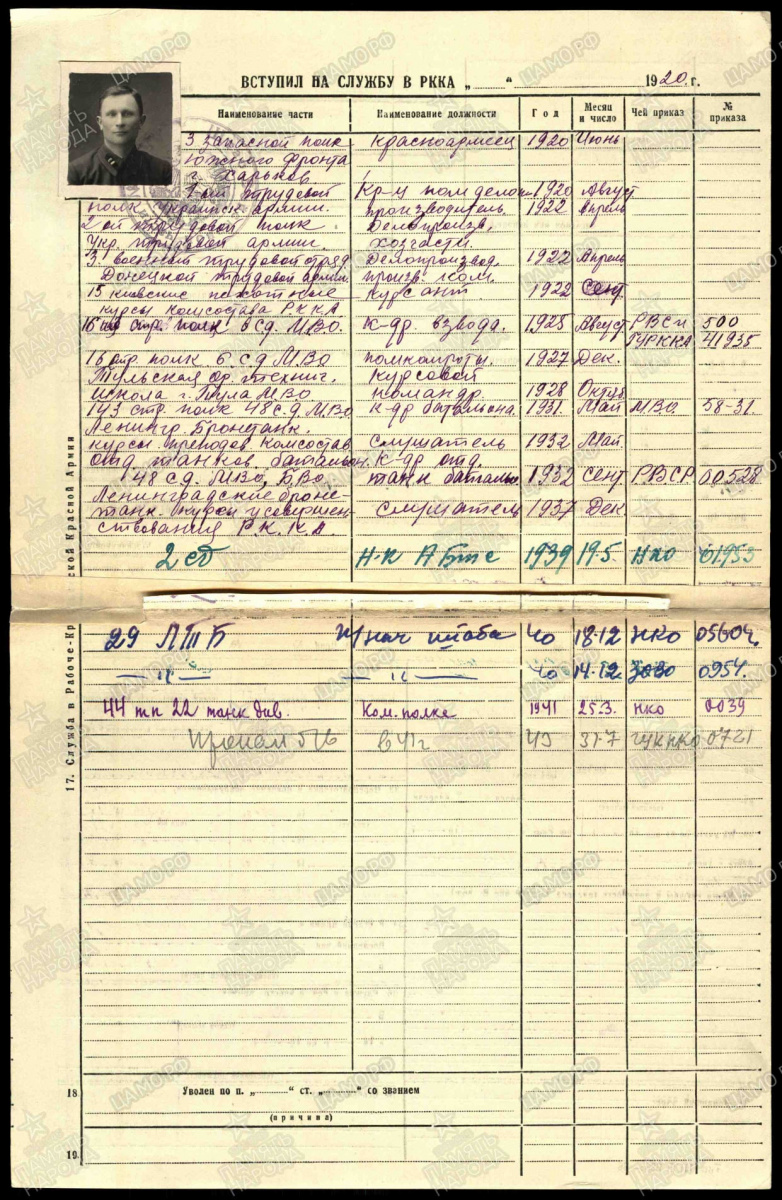 ВСТУПИЛ НА СЛУЖБУ В РККА „ “ 1920 г.
Наименование части Наименование должности Год Месяц и число Чей приказ № приказа
3 запасной полк красноармеец 1920 Июнь
Южного фронта
г. Харьков
1-ый трудовой Кр-ц пом делопр 1920 Август
полк Украинск армии. производитель. 1922 Апрель
2 ой трудовой полк Делопроизв.
Укр. трудовой армии. хозчасти.
3. военный трудовой отряд Делопроизвод. 1922 Апрель
Донецкой трудовой армии. произв. ком.
15 киевские пехотные курсант 1922 Сент.
курсы комсостава РККА
16 стр. полк 6 сд. МВО. к-др. взвода. 1925 Август РВСР 500
ГУРККА 41935
16 стр. полк 6 сд МВО помкомроты. 1927 Дек.
Тульская ор. технич. курсовой
школа г. Тула МВО командр. 1928 Октяб.
143 стр. полк 48 сд. МВО к-др батальона. 1931. Май МВО. 58-31.
Ленингр. Бронетанк.
курсы преподов комсостав слушатель 1932 Май
отд. танков. батальон. к-др отд.
48 сд. МВО, БВО танк баталь 1932 Сент РВСР 00528
Ленинградские броне-
танк. курсы усовершен- слушатель 1937 Дек
ствования Р.К.К.А.
2 сд Н-к АБтс 1939 19.5. Нко 01953
29 ЛТБ нач штаба 40 18.12 НКО 05604
— " — — " — 40 14.12 ЗОВО 0954.
44 тп 22 танк див. Ком. полка 1941 25.3. нко 0039
Пропал б/в в 41 г 43 31.7 ГУК НКО 0721
17. Служба в Рабоче-Крестьянской Красной Армии
18 Уволен по п. „ “ ст. „ “ со званием
(причина)
19.
ЦАМО.РФ
ПАМЯТЬ НАРОДА